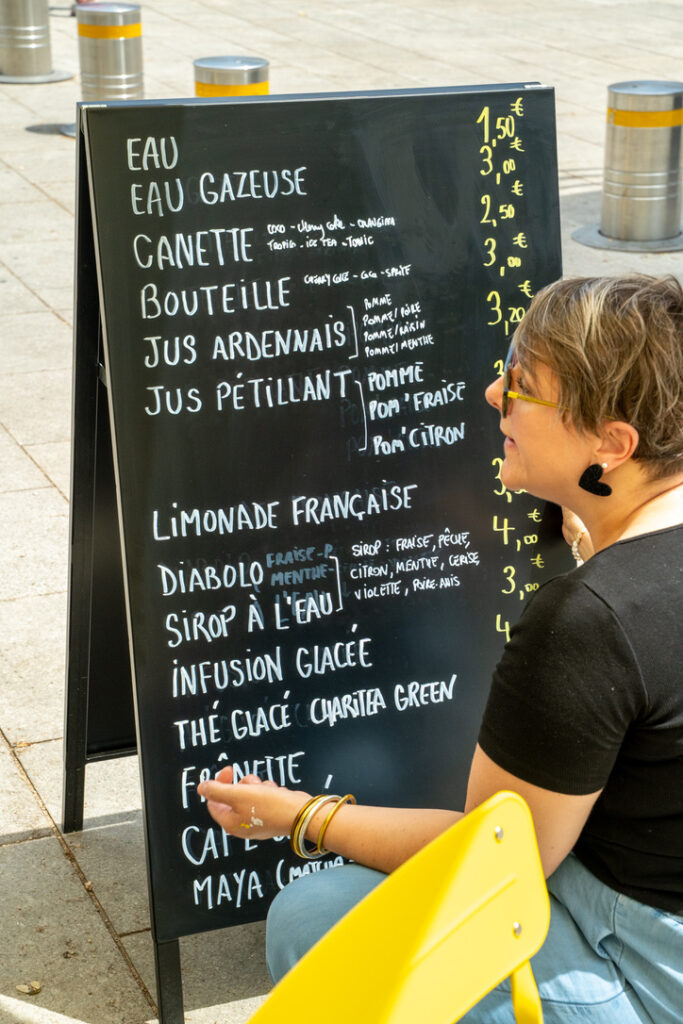 EAU 1,50 €
EAU GAZEUSE 3,00 €
CANETTE COCO - CHERRY COKE - ORANGINA 2,50 €
TROPICO - ICE TEA - TONIC
BOUTEILLE CHERRY COKE - COCA - SPRITE 3,00 €
JUS ARDENNAIS POMME 3,20 €
POMME/POIRE
POMME/RAISIN
POMME/MENTHE
JUS PÉTILLANT POMME
POM'FRAISE
POM'CITRON
LIMONADE FRANÇAISE
DIABOLO SIROP : FRAISE, PÊCHE, 4,00 €
FRAISE-P
MENTHE- CITRON, MENTHE, CERISE,
SIROP À L'EAU VIOLETTE, POIRE-ANIS 3,00 €
INFUSION GLACÉE 4
THÉ GLACÉ CHARITEA GREEN
FRÊNETTE
CAFÉ
MAYA (MATCHA